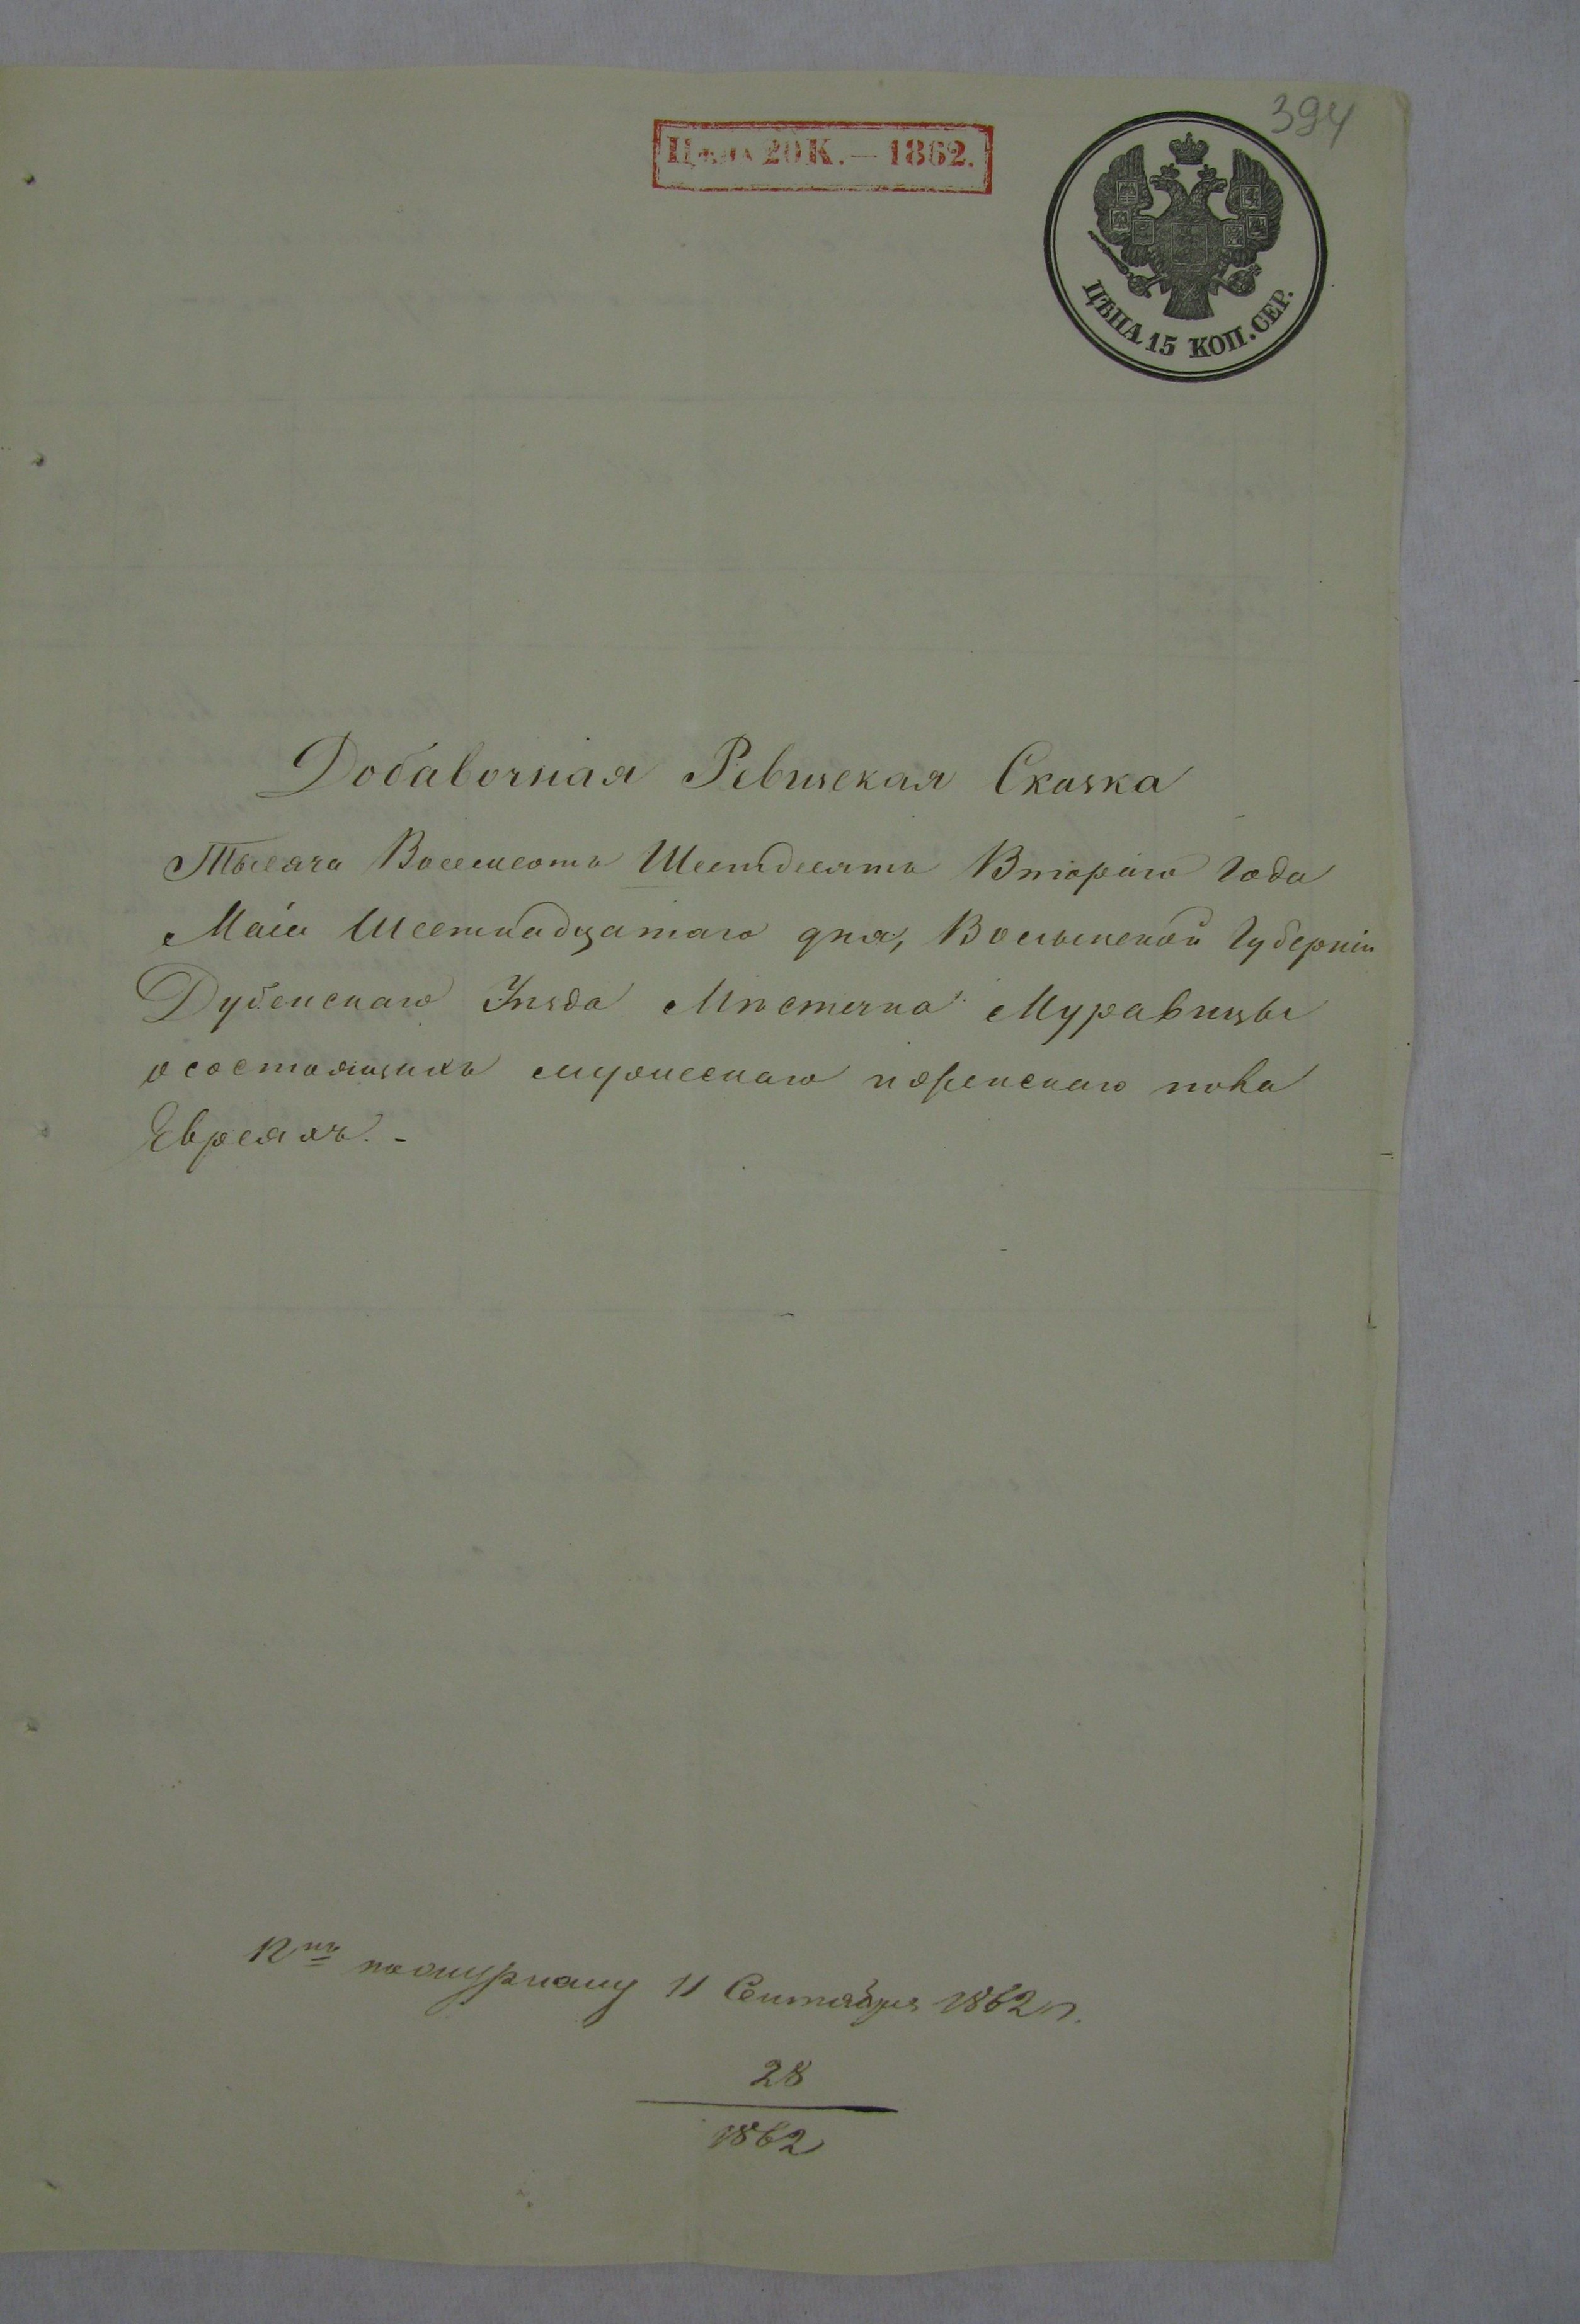 394
Цѣна 20 К. — 1862.
ЦѢНА 15 КОП. СЕР.
Добавочная Ревизская Сказка
Тысяча Восемсотъ Шестдесятъ Втораго Года
Маія Шестнадцатаго дня, Волынской Губерніи
Дубенскаго Уѣзда Мѣстечка Муравицы
о состоящихъ мужескаго и женскаго пола
Евреяхъ. -
по журналу 11 Сентября 1862 г.
28
1862